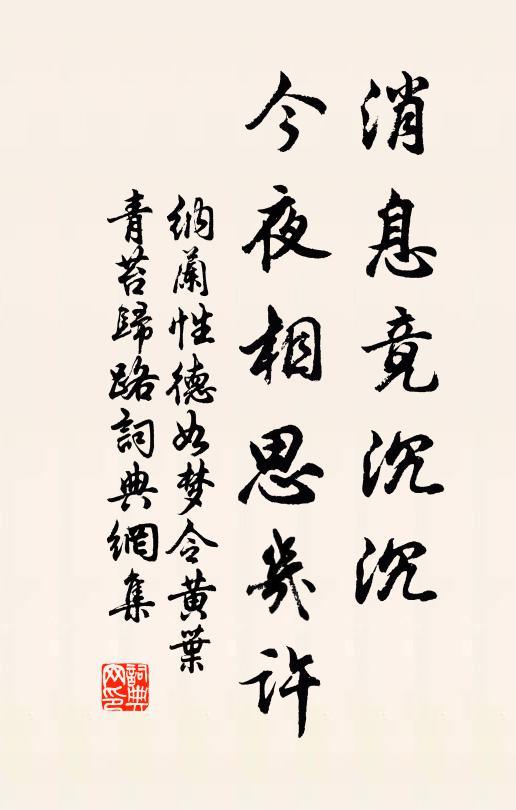 消息竟沉沉
今夜相思幾許
納蘭性德如梦令黄葉
青苔歸路詞典網集
詞典网印